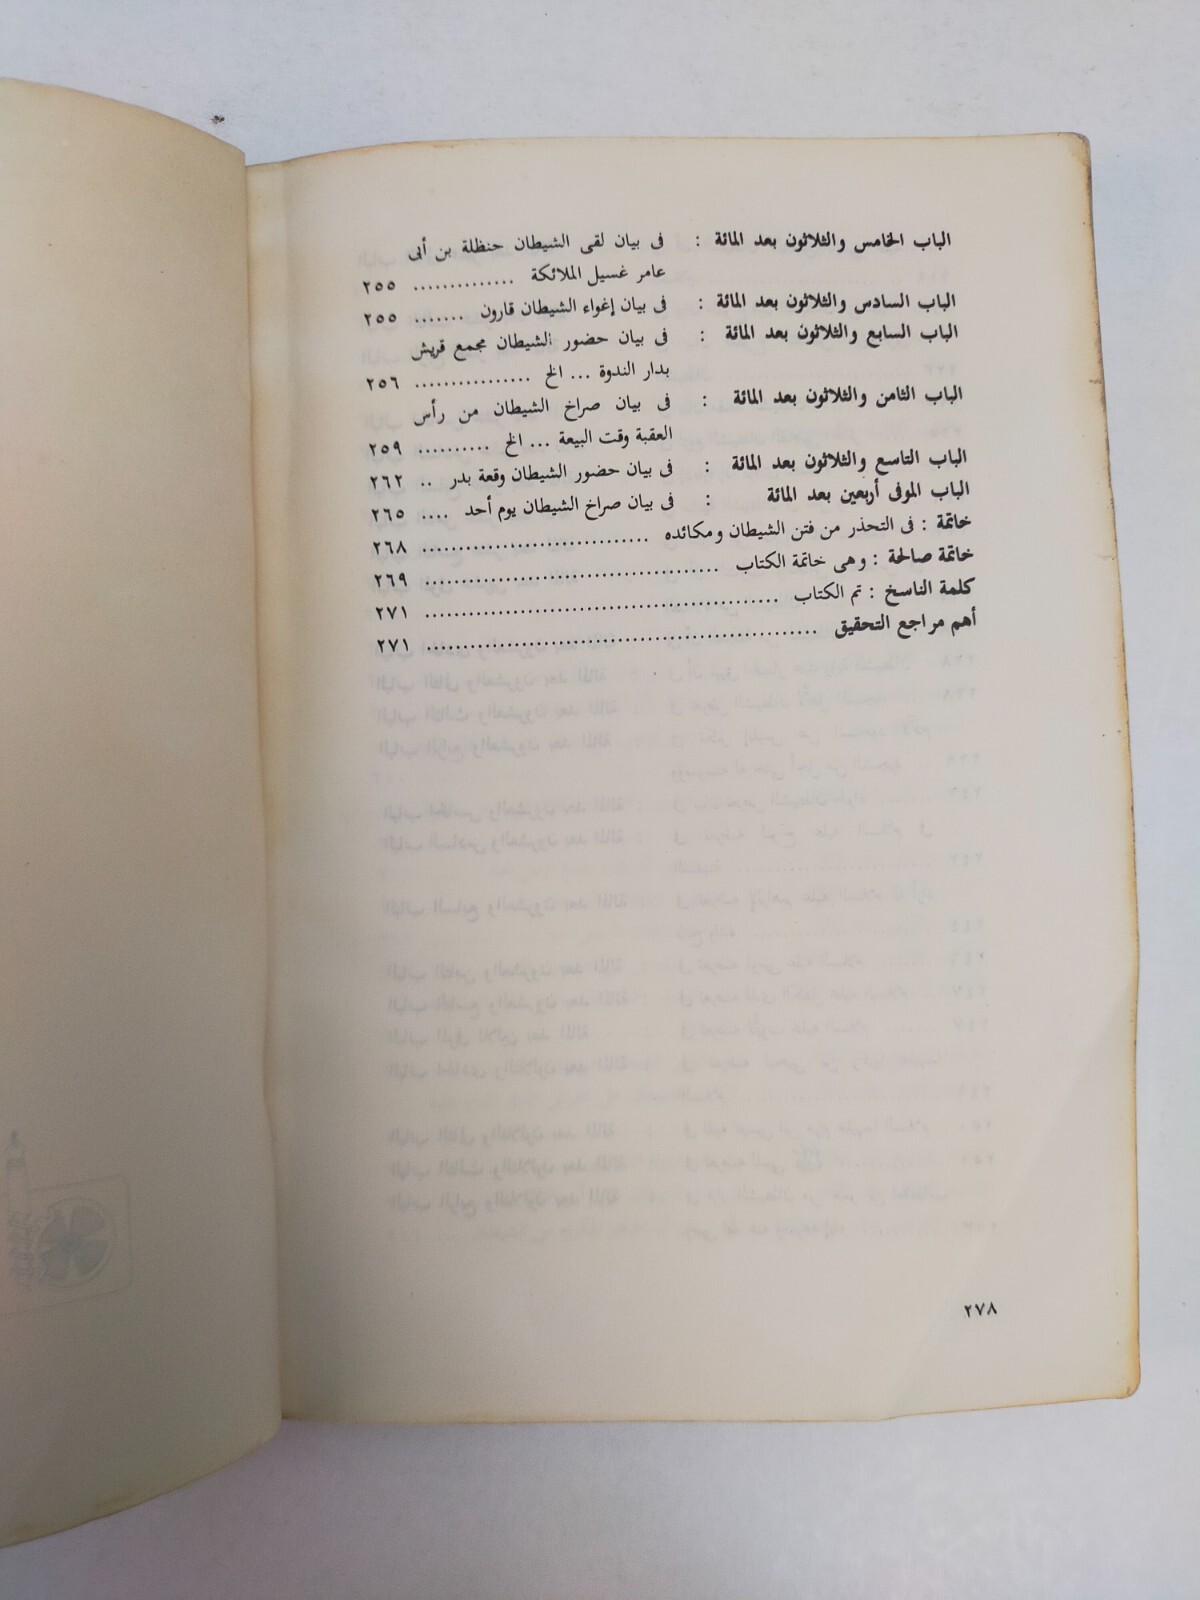 الباب الخامس والثلاثون بعد المائة : فى بيان لقى الشيطان حنظلة بن أبى
عامر غسيل الملائكة .............. ٢٥٥
الباب السادس والثلاثون بعد المائة : فى بيان إغواء الشيطان قارون ....... ٢٥٥
الباب السابع والثلاثون بعد المائة : فى بيان حضور الشيطان مجمع قريش
بدار الندوة ... الخ ................ ٢٥٦
الباب الثامن والثلاثون بعد المائة : فى بيان صراخ الشيطان من رأس
العقبة وقت البيعة ... الخ .......... ٢٥٩
الباب التاسع والثلاثون بعد المائة : فى بيان حضور الشيطان وقعة بدر .. ٢٦٢
الباب الموفى أربعين بعد المائة : فى بيان صراخ الشيطان يوم أحد .... ٢٦٥
خاتمة : فى التحذر من فتن الشيطان ومكائده ............................... ٢٦٨
خاتمة صالحة : وهى خاتمة الكتاب ........................................ ٢٦٩
كلمة الناسخ : تم الكتاب ................................................ ٢٧١
أهم مراجع التحقيق ...................................................... ٢٧١
٢٧٨